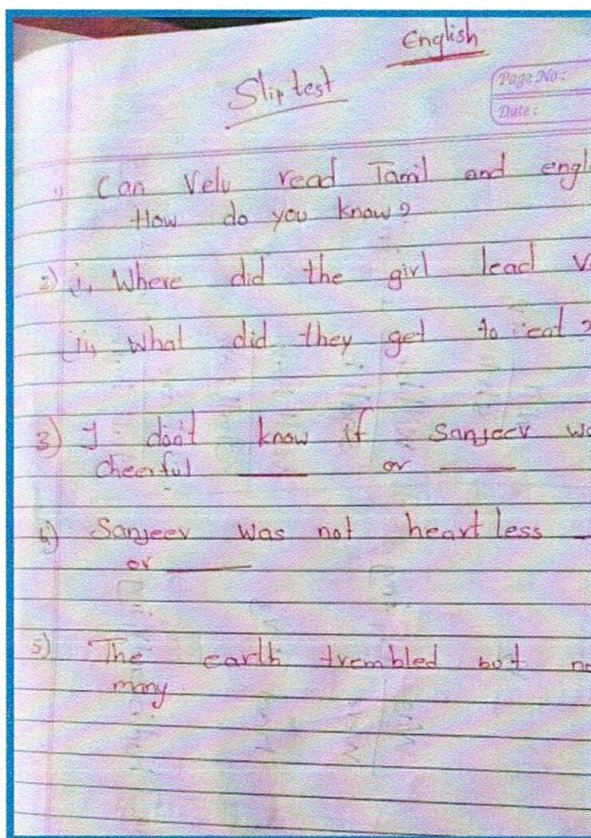 English
Slip test
Page No:
Date:
1) Can Velu read Tamil and engl
How do you know?
2) i, Where did the girl lead V
ii, What did they get to eat?
3) I don't know if Sanjeev wa
cheerful ____ or ____
4) Sanjeev was not heartless _
or ____
5) The earth trembled but no
many